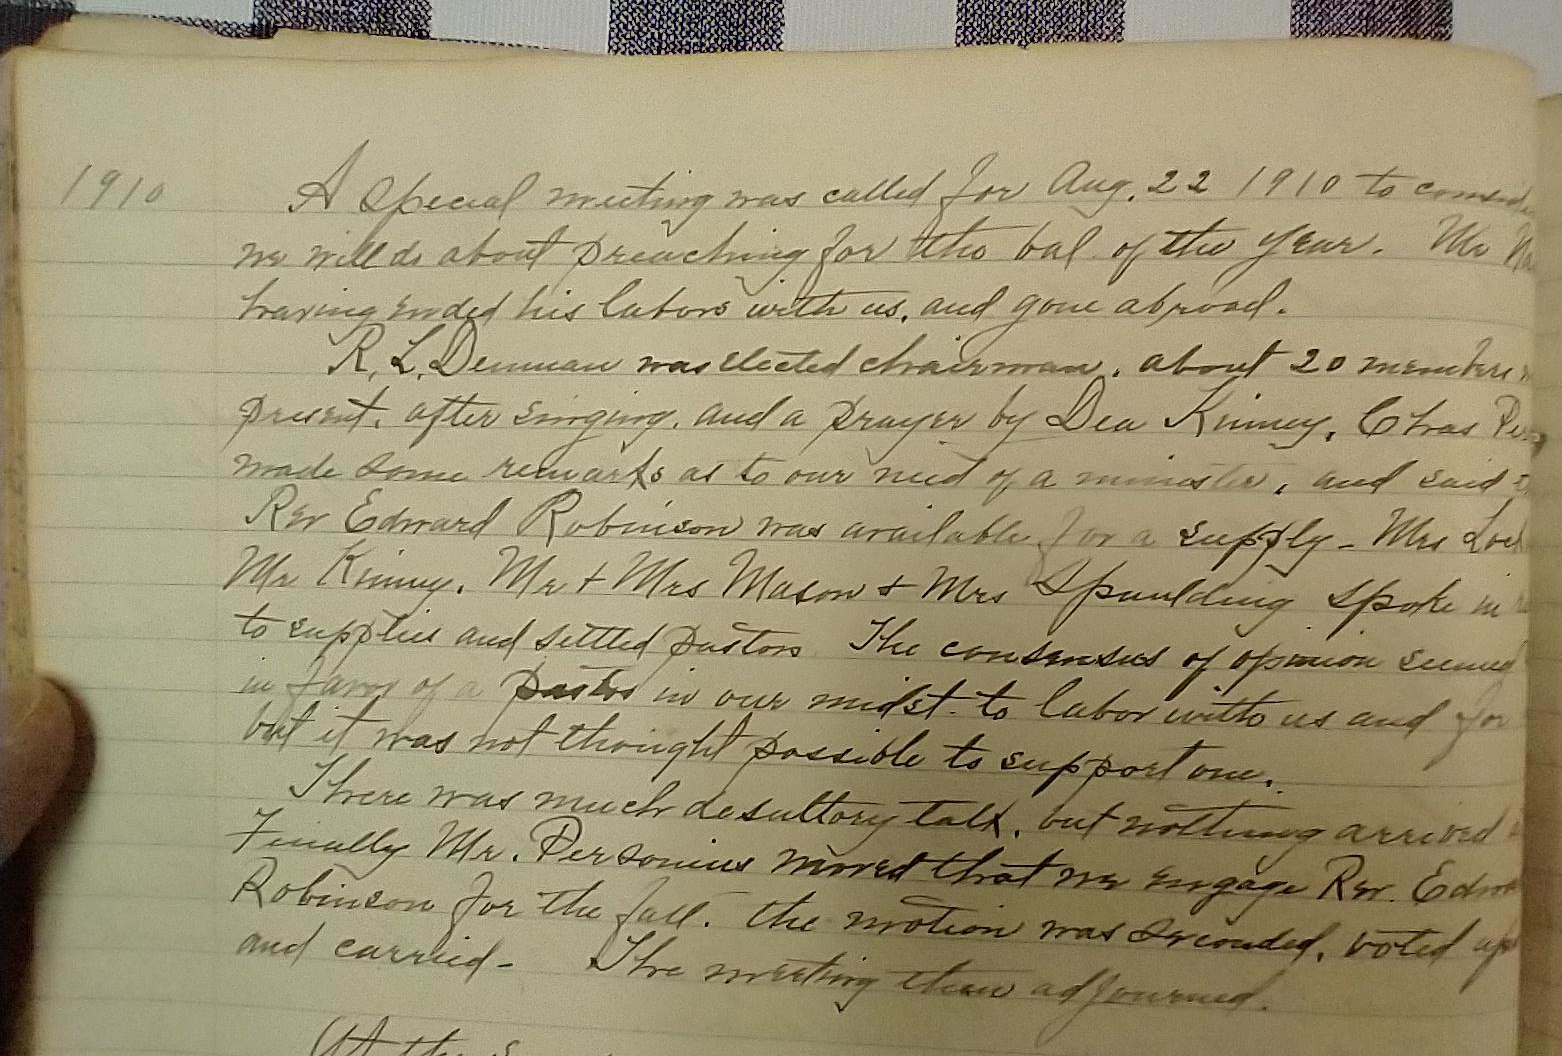 1910
A special meeting was called for Aug. 22 1910 to consider
we will do about preaching for the bal. of the year. Mr
having ended his labors with us, and gone abroad.
R. L. Denman was elected chairman, about 20 members
present. after singing, and a prayer by Dea Kinney, Chas
made some remarks as to our need of a minister, and said
Rev Edward Robinson was available for a supply - Mrs
Mr Kinney, Mr + Mrs Mason + Mrs Spaulding spoke in
to supplies and settled pastors The consensus of opinion seemed
in favor of a pastor in our midst to labor with us and for
but it was not thought possible to support one.
There was much desultory talk, but nothing arrived
Finally Mr. Personius moved that we engage Rev. Edwa
Robinson for the fall. the motion was seconded, voted
and carried - The meeting then adjourned.
At the